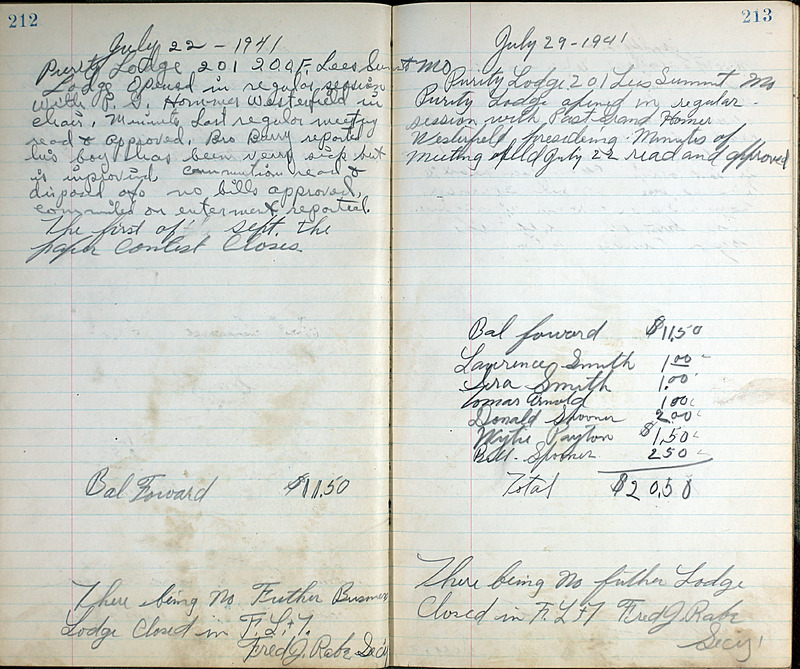 212
July 22 - 1941
Purity Lodge 201 I.O.O.F. Lees Summit Mo
Lodge opened in regular session
with P. G. Hommer Westerfield in
chair, Minunts Last regular meeting
read & approved, Bro Barry reports
his boy has been very sick but
is improved communition read &
disposd of no bills approved,
commites or enterment reported.
The first of Sept. the
paper Contest Closes
Bal Foward $11.50
There being no Futher Busness
Lodge Closed in F. L. + T.
Fred J. Rabe Secy
213
July 29 - 1941
Purity Lodge 201 Lees Summit Mo
Purity Lodge opened in regular
session with Past Grand Homer
Westerfield presiding. Minutes of
meeting of July 22 read and approved
Bal foward $11.50
Lawrence Smith 1.00
Ira Smith 1.00
Lomar Arnold 1.00
Donald Spooner 2.00
Wytie Payton $1.50
Bill Spooner 2.50
Total $20.50
There being no futher Lodge
Closed in F. L + T Fred J. Rabe
Secy